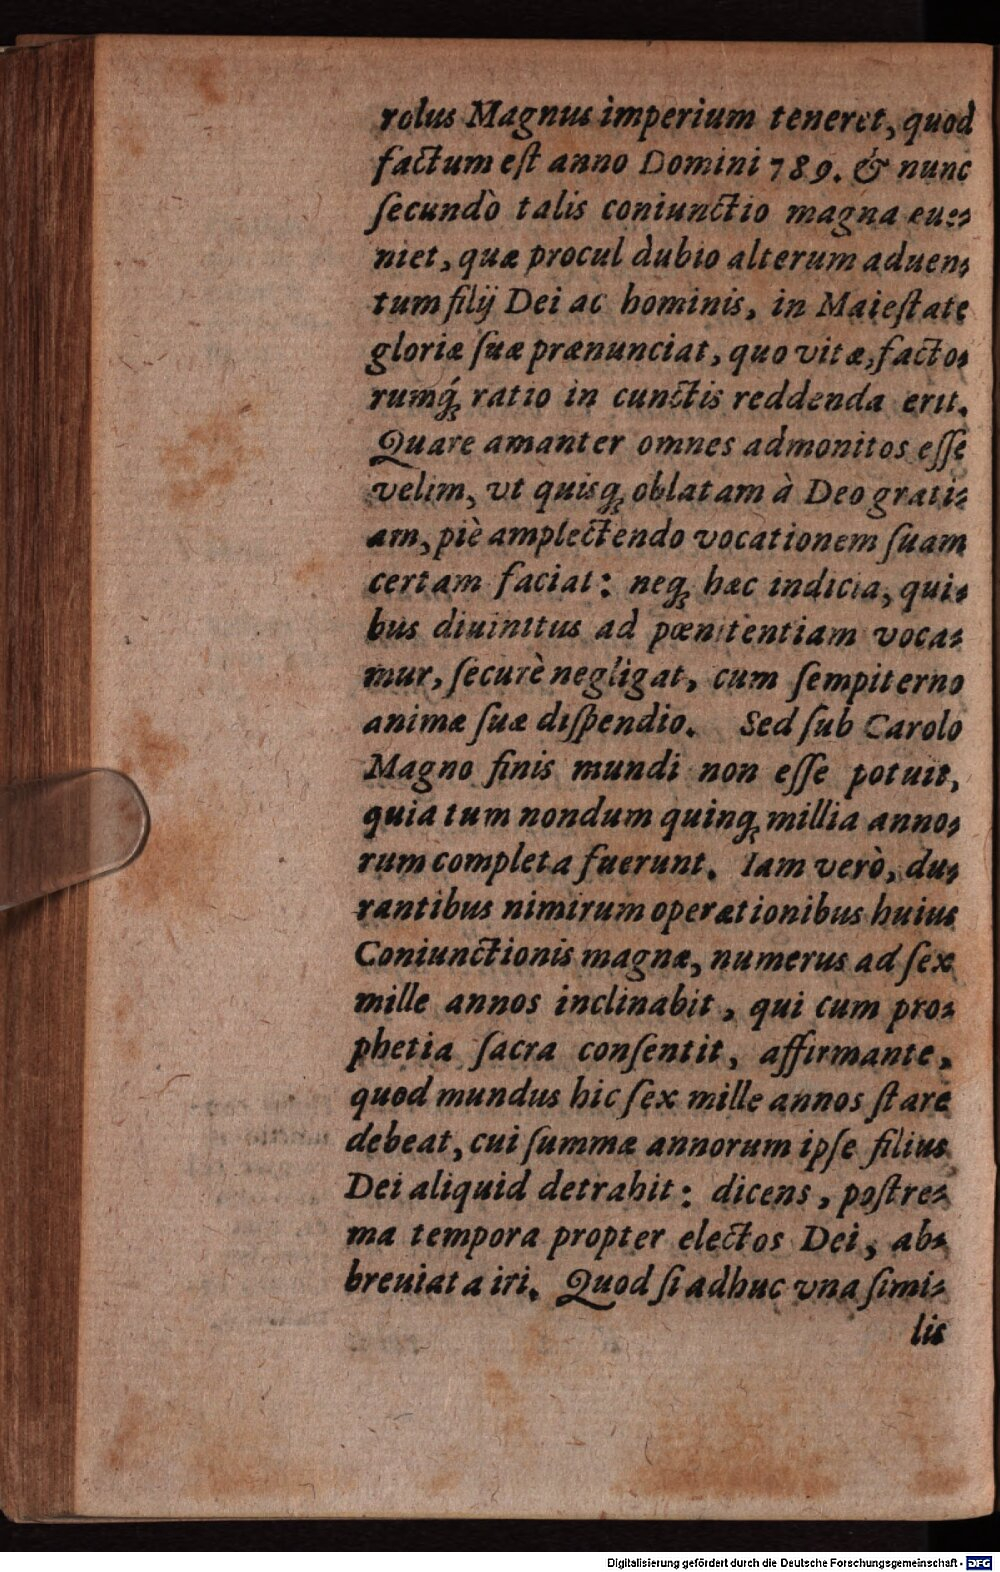 rolus Magnus imperium teneret, quod
factum eſt anno Domini 789. & nunc
ſecundò talis coniunctio magna eue⸗
niet, quæ procul dubio alterum aduen⸗
tum filij Dei ac hominis, in Maieſtate
gloriæ ſuæ prænunciat, quo vitæ, facto⸗
rumq́ꝫ ratio in cunctis reddenda erit.
Quare amanter omnes admonitos eſſe
velim, vt quisqꝫ oblatam à Deo grati⸗
am, piè amplectendo vocationem ſuam
certam faciat: neqꝫ hæc indicia, qui⸗
bus diuinitus ad pœnitentiam voca⸗
mur, ſecurè negligat, cum ſempiterno
animæ ſuæ diſpendio. Sed ſub Carolo
Magno finis mundi non eſſe potuit,
quia tum nondum quinqꝫ millia anno⸗
rum completa fuerunt. Iam verò, du⸗
rantibus nimirum operationibus huius
Coniunctionis magnæ, numerus ad ſex
mille annos inclinabit, qui cum pro⸗
phetia ſacra conſentit, affirmante,
quod mundus hic ſex mille annos ſtare
debeat, cui ſummæ annorum ipſe filius
Dei aliquid detrahit: dicens, poſtre⸗
ma tempora propter electos Dei, ab⸗
breuiata iri. Quod ſi adhuc vna ſimi⸗
lis
Digitalisierung gefördert durch die Deutsche Forschungsgemeinschaft - DFG